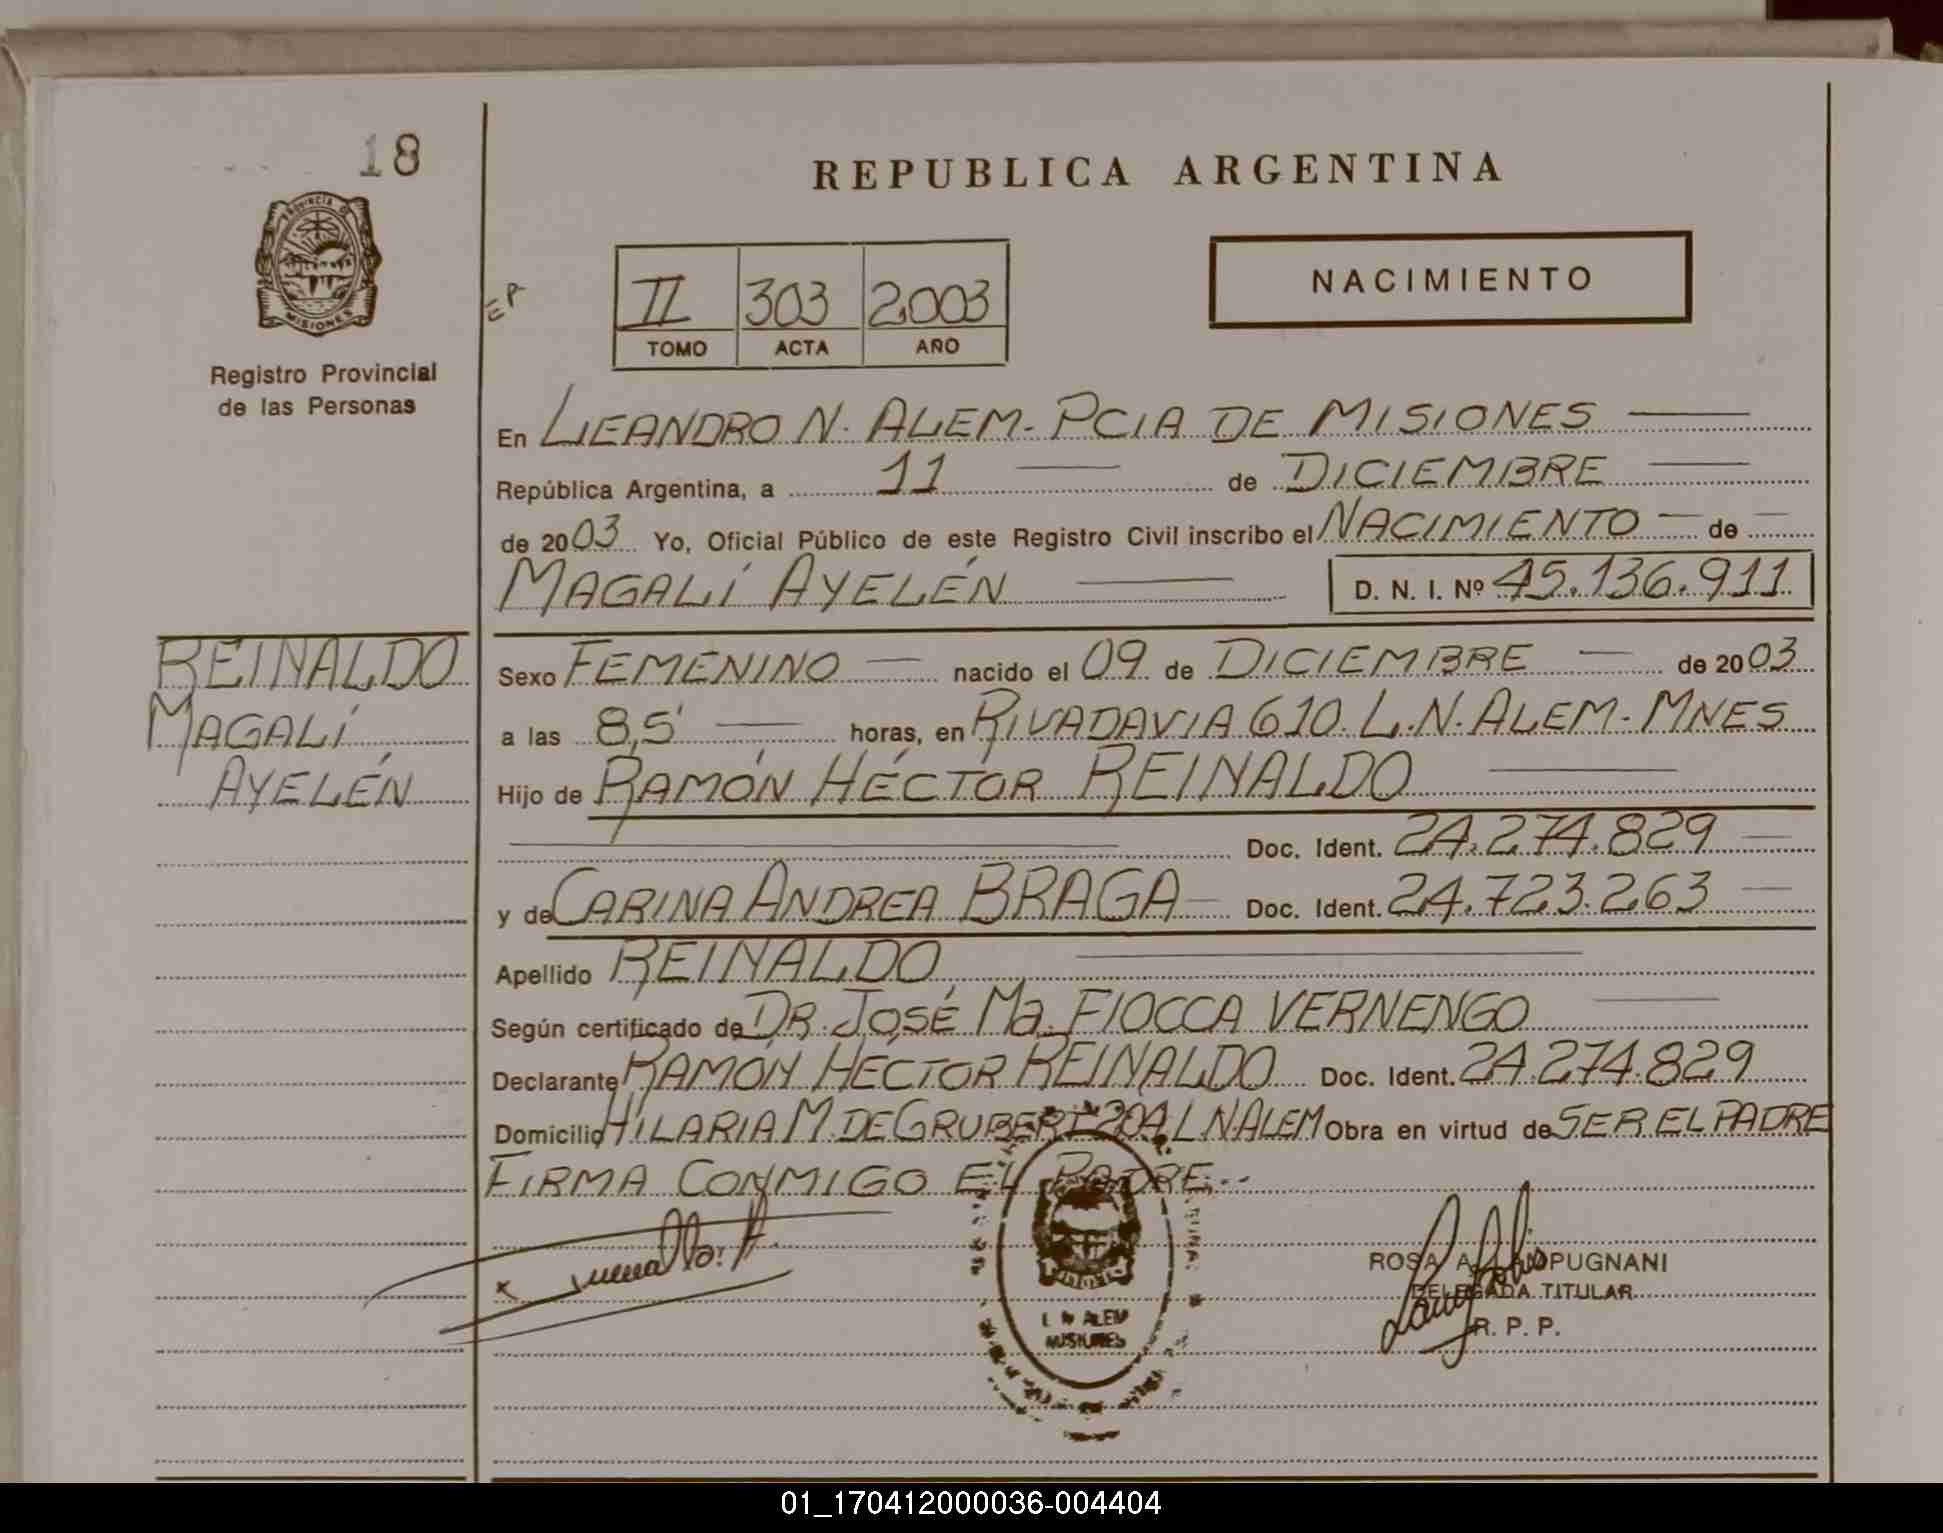 18
REPUBLICA ARGENTINA
PROVINCIA DE
MISIONES
Registro Provincial
de las Personas
II 303 2.003
TOMO ACTA AÑO
NACIMIENTO
En LEANDRO N. ALEM - PCIA DE MISIONES
República Argentina, a 11 de DICIEMBRE
de 2003 Yo, Oficial Público de este Registro Civil inscribo el NACIMIENTO de
MAGALÍ AYELÉN D. N. I. Nº 45.136.911
REINALDO
MAGALÍ
AYELÉN
Sexo FEMENINO nacido el 09 de DICIEMBRE de 2003
a las 8,5' horas, en RIVADAVIA 610. L.N. ALEM - MNES
Hijo de RAMÓN HÉCTOR REINALDO
Doc. Ident. 24.274.829
y de CARINA ANDREA BRAGA Doc. Ident. 24.723.263
Apellido REINALDO
Según certificado de DR. JOSÉ Ma. FIOCCA VERNENGO
Declarante RAMÓN HÉCTOR REINALDO Doc. Ident. 24.274.829
Domicilio HILARIA M. DE GRUBERT 204 L.N. ALEM Obra en virtud de SER EL PADRE
FIRMA CONMIGO EL PADRE.--
ROSA A. LAMPUGNANI
DELEGADA TITULAR
R. P. P.
L N ALEM
MISIONES
01_170412000036-004404